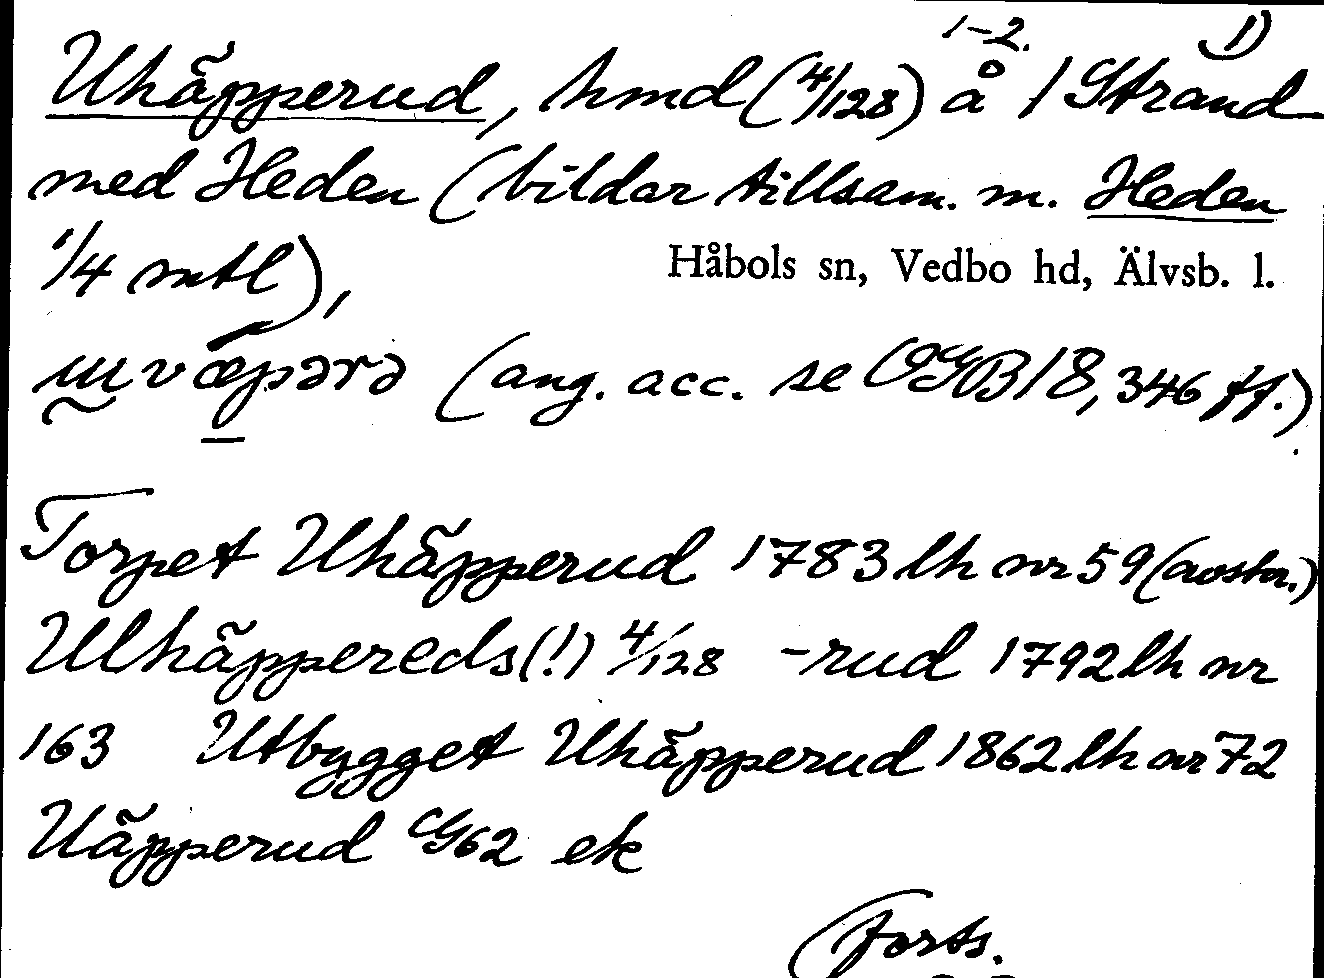 1-2. 1)
Uhäpperud, hmd (4/128) å 1 Strand
med Heden (bildar tillsam. m. Heden
1/4 mtl),
Håbols sn, Vedbo hd, Älvsb. l.
(ang. acc. se OGB 18, 346 ff.)
Torpet Uhäpperud 1783 lh nr 59 (avskr.)
Ulhäppereds(!) 4/128 -rud 1792 lh nr
163 Utbygget Uhäpperud 1862 lh nr 72
Uäpperud G62 ek
(forts.